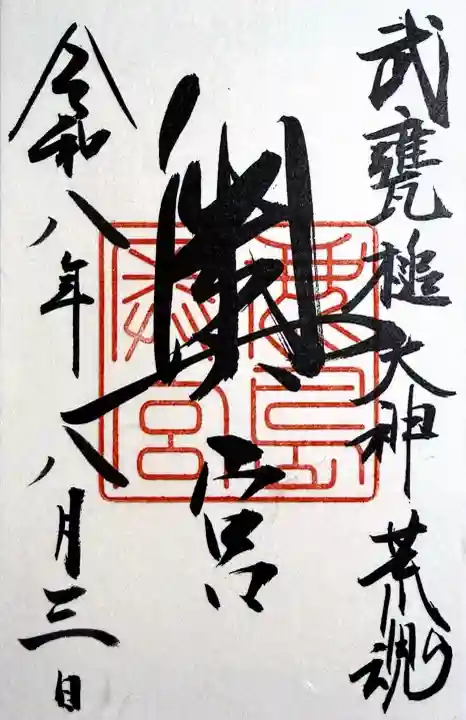 武甕槌大神 荒魂
奥宮
令和八年八月三日
鹿島
奥宮